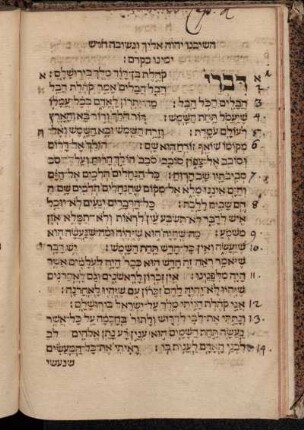 Cap. 1
השיבנו יהוה אליך ונשובה חדש
ימינו כקדם:
א דברי קהלת בן־דוד מלך בירושלם: א
2 הבל הבלים אמר קהלת הבל
3 הבלים הכל הבל: מה־יתרון לאדם בכל־עמלו
4 שיעמל תחת השמש: דור הלך ודור בא והארץ
5 לעולם עמדת: וזרח השמש ובא השמש ואל־
6 מקומו שואף זורח הוא שם: הולך אל־דרום
וסובב אל־צפון סובב סבב הולך הרוח ועל־
7 סביבתיו שב הרוח: כל־הנחלים הלכים אל־הים
והים איננו מלא אל־מקום שהנחלים הלכים שם
8 הם שבים ללכת: כל־הדברים יגעים לא־יוכל
איש לדבר לא־תשבע עין לראות ולא־תמלא אזן
9 משמע: מה־שהיה הוא שיהיה ומה־שנעשה הוא
10 שיעשה ואין כל־חדש תחת השמש: יש דבר
שיאמר ראה־זה חדש הוא כבר היה לעלמים אשר
11 היה מלפננו: אין זכרון לראשנים וגם לאחרנים
שיהיו לא־יהיה להם זכרון עם שיהיו לאחרנה:
12 אני קהלת הייתי מלך על־ישראל בירושלם:
13 ונתתי את־לבי לדרוש ולתור בחכמה על כל־אשר
נעשה תחת השמים הוא ענין רע נתן אלהים
14 לבני האדם לענות בו: ראיתי את־כל־המעשים
שנעשו